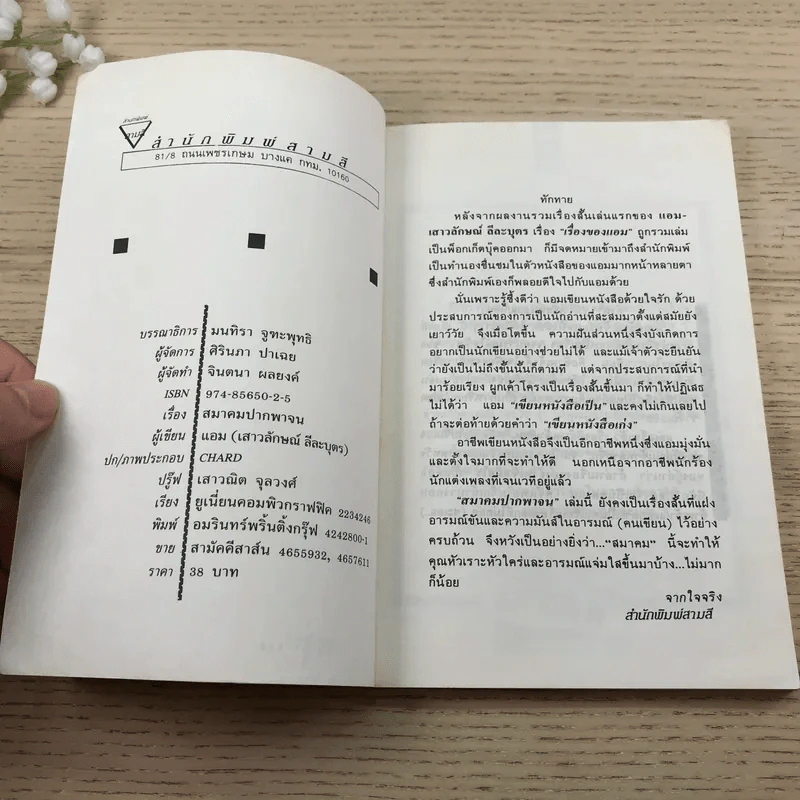 สำนักพิมพ์
สามสี
สำนักพิมพ์สามสี
81/8 ถนนเพชรเกษม บางแค กทม. 10160
บรรณาธิการ มนทิรา จูฑะพุทธิ
ผู้จัดการ ศิรินภา ปาเฉย
ผู้จัดทำ จินตนา ผลยงค์
ISBN 974-85650-2-5
เรื่อง สมาคมปากพาจน
ผู้เขียน แอม (เสาวลักษณ์ ลีละบุตร)
ปก/ภาพประกอบ CHARD
ปรู๊ฟ เสาวณิต จุลวงศ์
เรียง ยูเนี่ยนคอมพิวกราฟฟิค 2234246
พิมพ์ อมรินทร์พริ้นติ้งกรุ๊ฟ 4242800-1
ขาย สามัคคีสาส์น 4655932, 4657611
ราคา 38 บาท
ทักทาย
หลังจากผลงานรวมเรื่องสั้นเล่นแรกของ แอม-
เสาวลักษณ์ ลีละบุตร เรื่อง "เรื่องของแอม" ถูกรวมเล่ม
เป็นพ็อกเก็ตบุ๊คออกมา ก็มีจดหมายเข้ามาถึงสำนักพิมพ์
เป็นทำนองชื่นชมในตัวหนังสือของแอมมากหน้าหลายตา
ซึ่งสำนักพิมพ์เองก็พลอยดีใจไปกับแอมด้วย
นั่นเพราะรู้ซึ้งดีว่า แอมเขียนหนังสือด้วยใจรัก ด้วย
ประสบการณ์ของการเป็นนักอ่านที่สะสมมาตั้งแต่สมัยยัง
เยาว์วัย จึงเมื่อโตขึ้น ความฝันส่วนหนึ่งจึงบังเกิดการ
อยากเป็นนักเขียนอย่างช่วยไม่ได้ และแม้เจ้าตัวจะยืนยัน
ว่ายังเป็นไม่ถึงขั้นนั้นก็ตามที แต่จากประสบการณ์ที่นำ
มาร้อยเรียง ผูกเค้าโครงเป็นเรื่องสั้นขึ้นมา ก็ทำให้ปฏิเสธ
ไม่ได้ว่า แอม "เขียนหนังสือเป็น" และคงไม่เกินเลยไป
ถ้าจะต่อท้ายด้วยคำว่า "เขียนหนังสือเก่ง"
อาชีพเขียนหนังสือจึงเป็นอีกอาชีพหนึ่งซึ่งแอมมุ่งมั่น
และตั้งใจมากที่จะทำให้ดี นอกเหนือจากอาชีพนักร้อง
นักแต่งเพลงที่เจนเวทีอยู่แล้ว
"สมาคมปากพาจน" เล่มนี้ ยังคงเป็นเรื่องสั้นที่แฝง
อารมณ์ขันและความมันส์ในอารมณ์ (คนเขียน) ไว้อย่าง
ครบถ้วน จึงหวังเป็นอย่างยิ่งว่า..."สมาคม" นี้จะทำให้
คุณหัวเราะหัวใคร่และอารมณ์แจ่มใสขึ้นมาบ้าง...ไม่มาก
ก็น้อย
จากใจจริง
สำนักพิมพ์สามสี